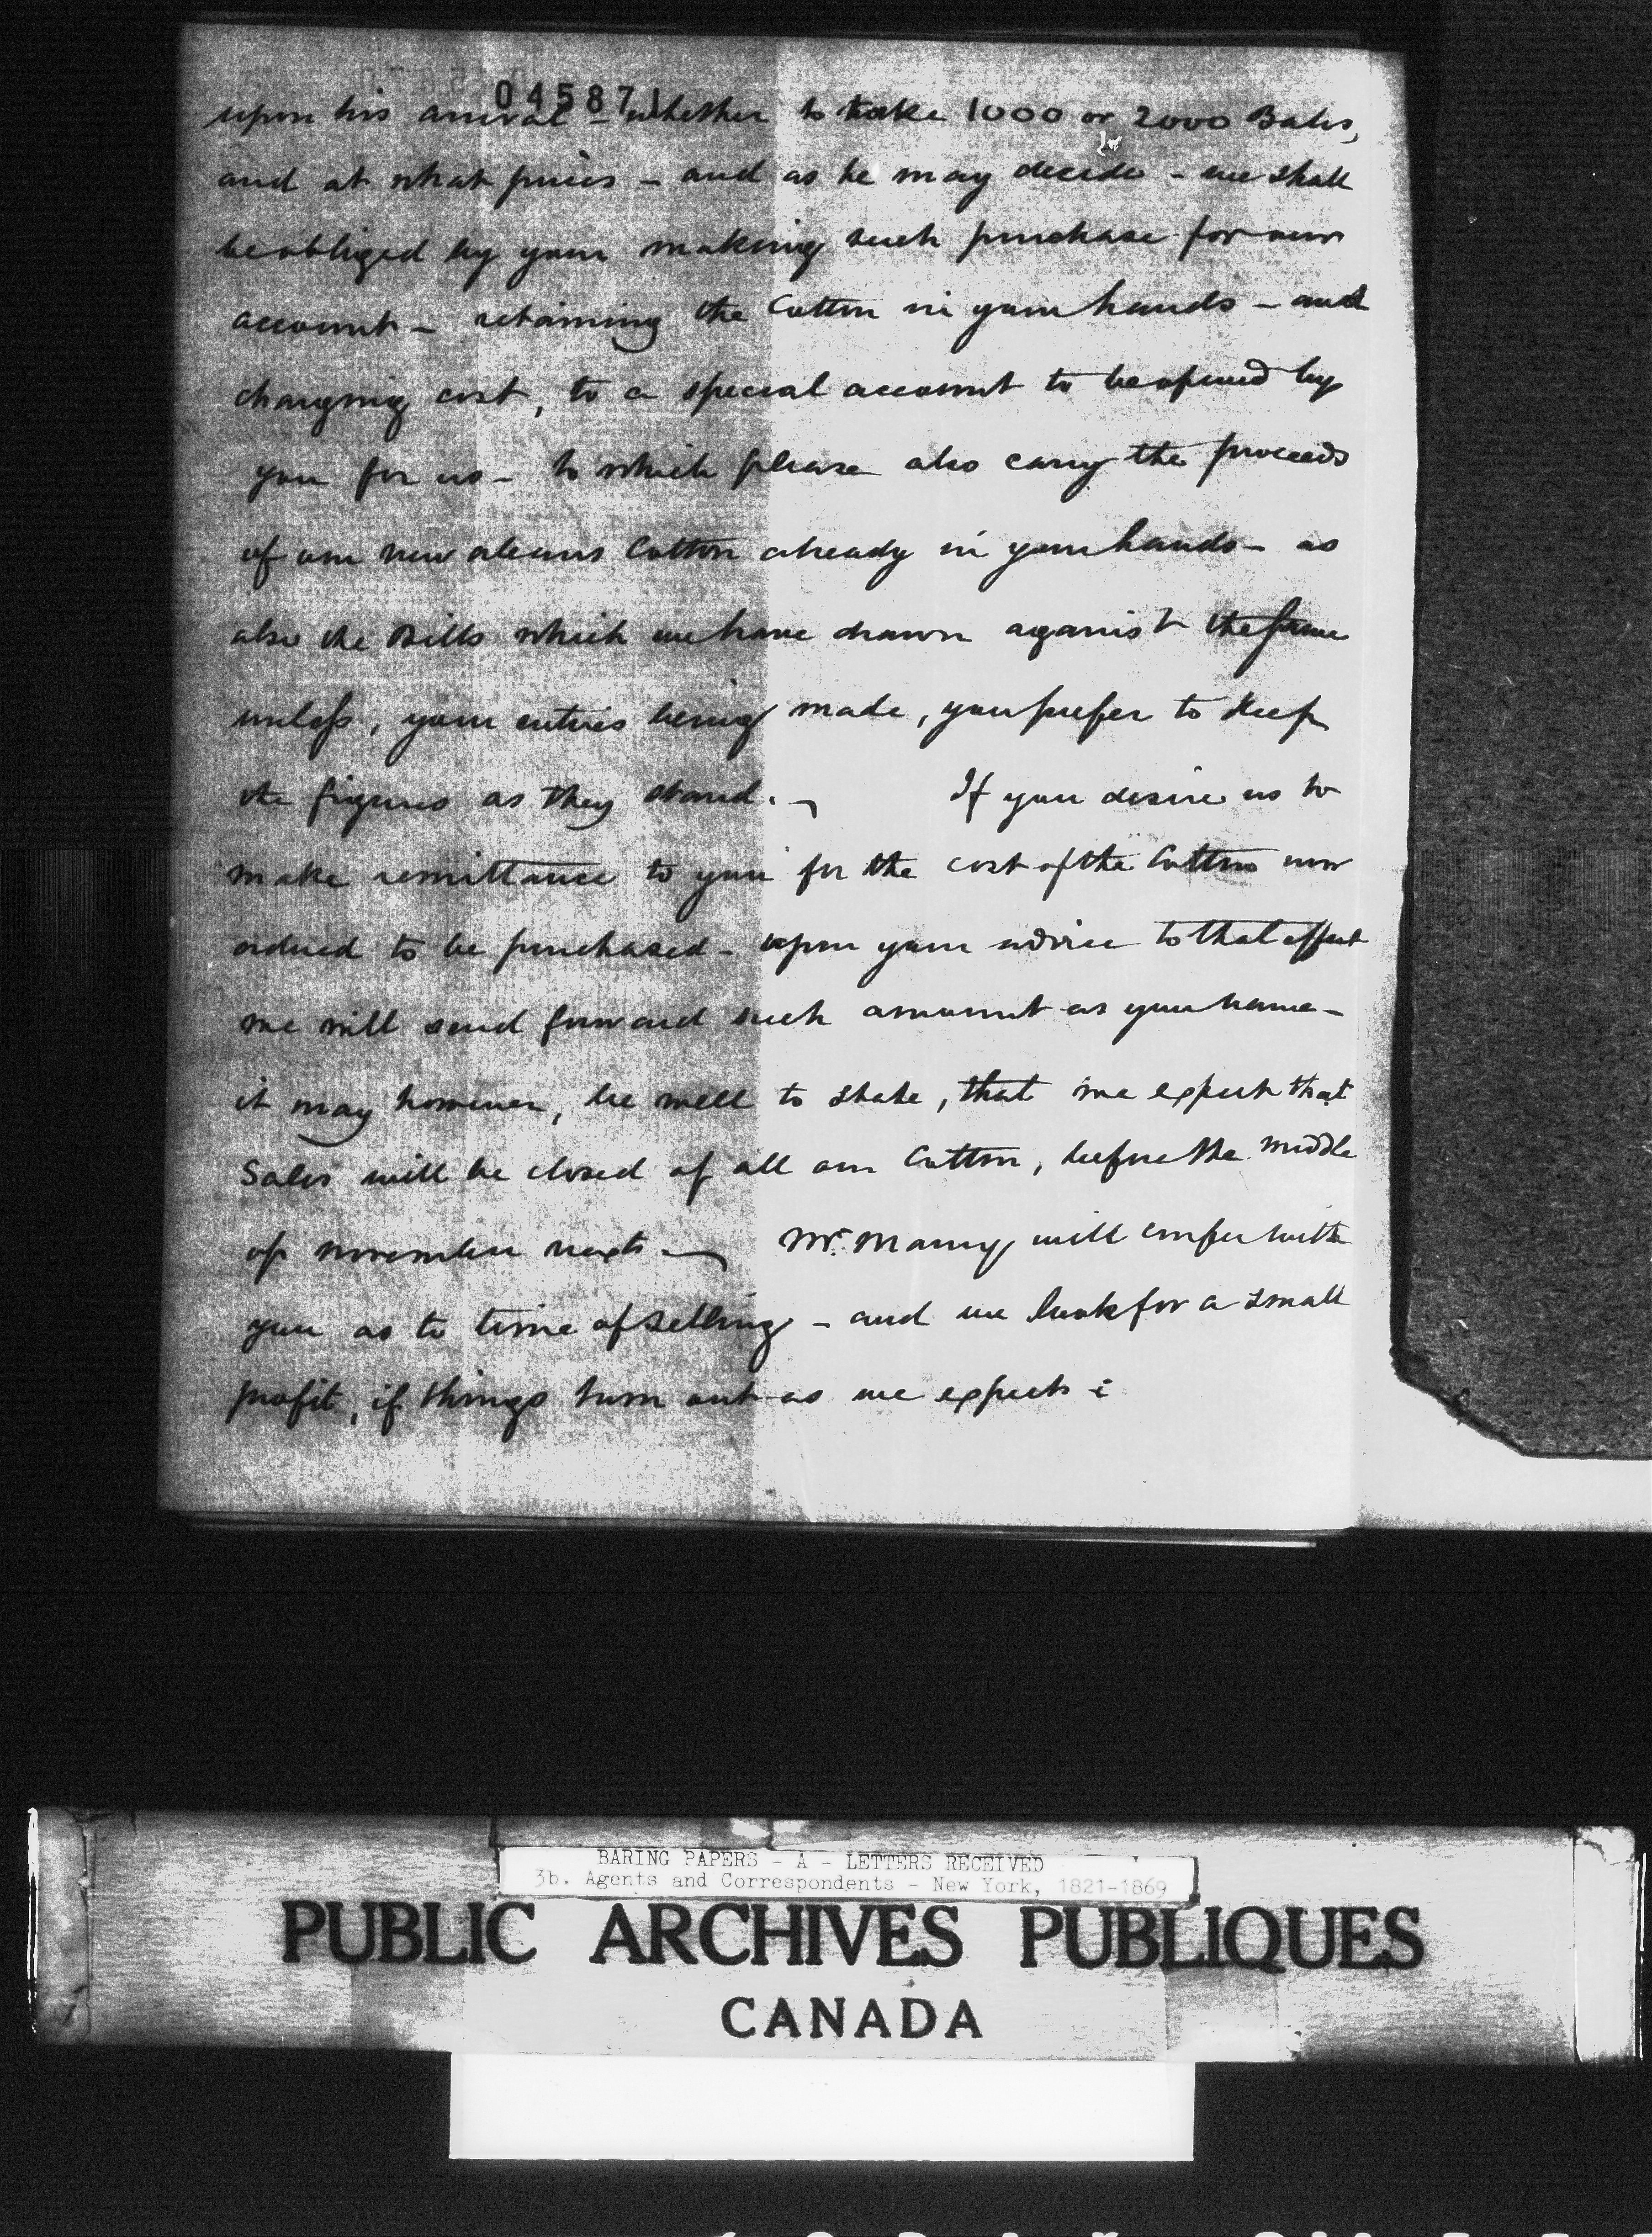 04587
upon his arrival - whether to take 1000 or 2000 Bales,
and at what prices - and as he may decide - we shall
be obliged by your making such purchase for our
account - retaining the Cotton in your hands - and
charging cost, to a special account to be opened by
you for us - to which please also carry the proceeds
of our New Orleans Cotton already in your hands - as
also the Bills which we have drawn against the same
unless, your entries being made, you prefer to keep
the figures as they stand. - If you desire us to
make remittance to you for the cost of the Cotton now
ordered to be purchased - upon your advice to that effect
we will send forward such amount as you name -
it may however, be well to state, that we expect that
Sales will be closed of all our Cotton, before the middle
of November next. - Mr. will confer with
you as to time of selling - and we look for a small
profit, if things turn out as we expect :
BARING PAPERS - A - LETTERS RECEIVED
3b. Agents and Correspondents - New York, 1821-1869
PUBLIC ARCHIVES PUBLIQUES
CANADA